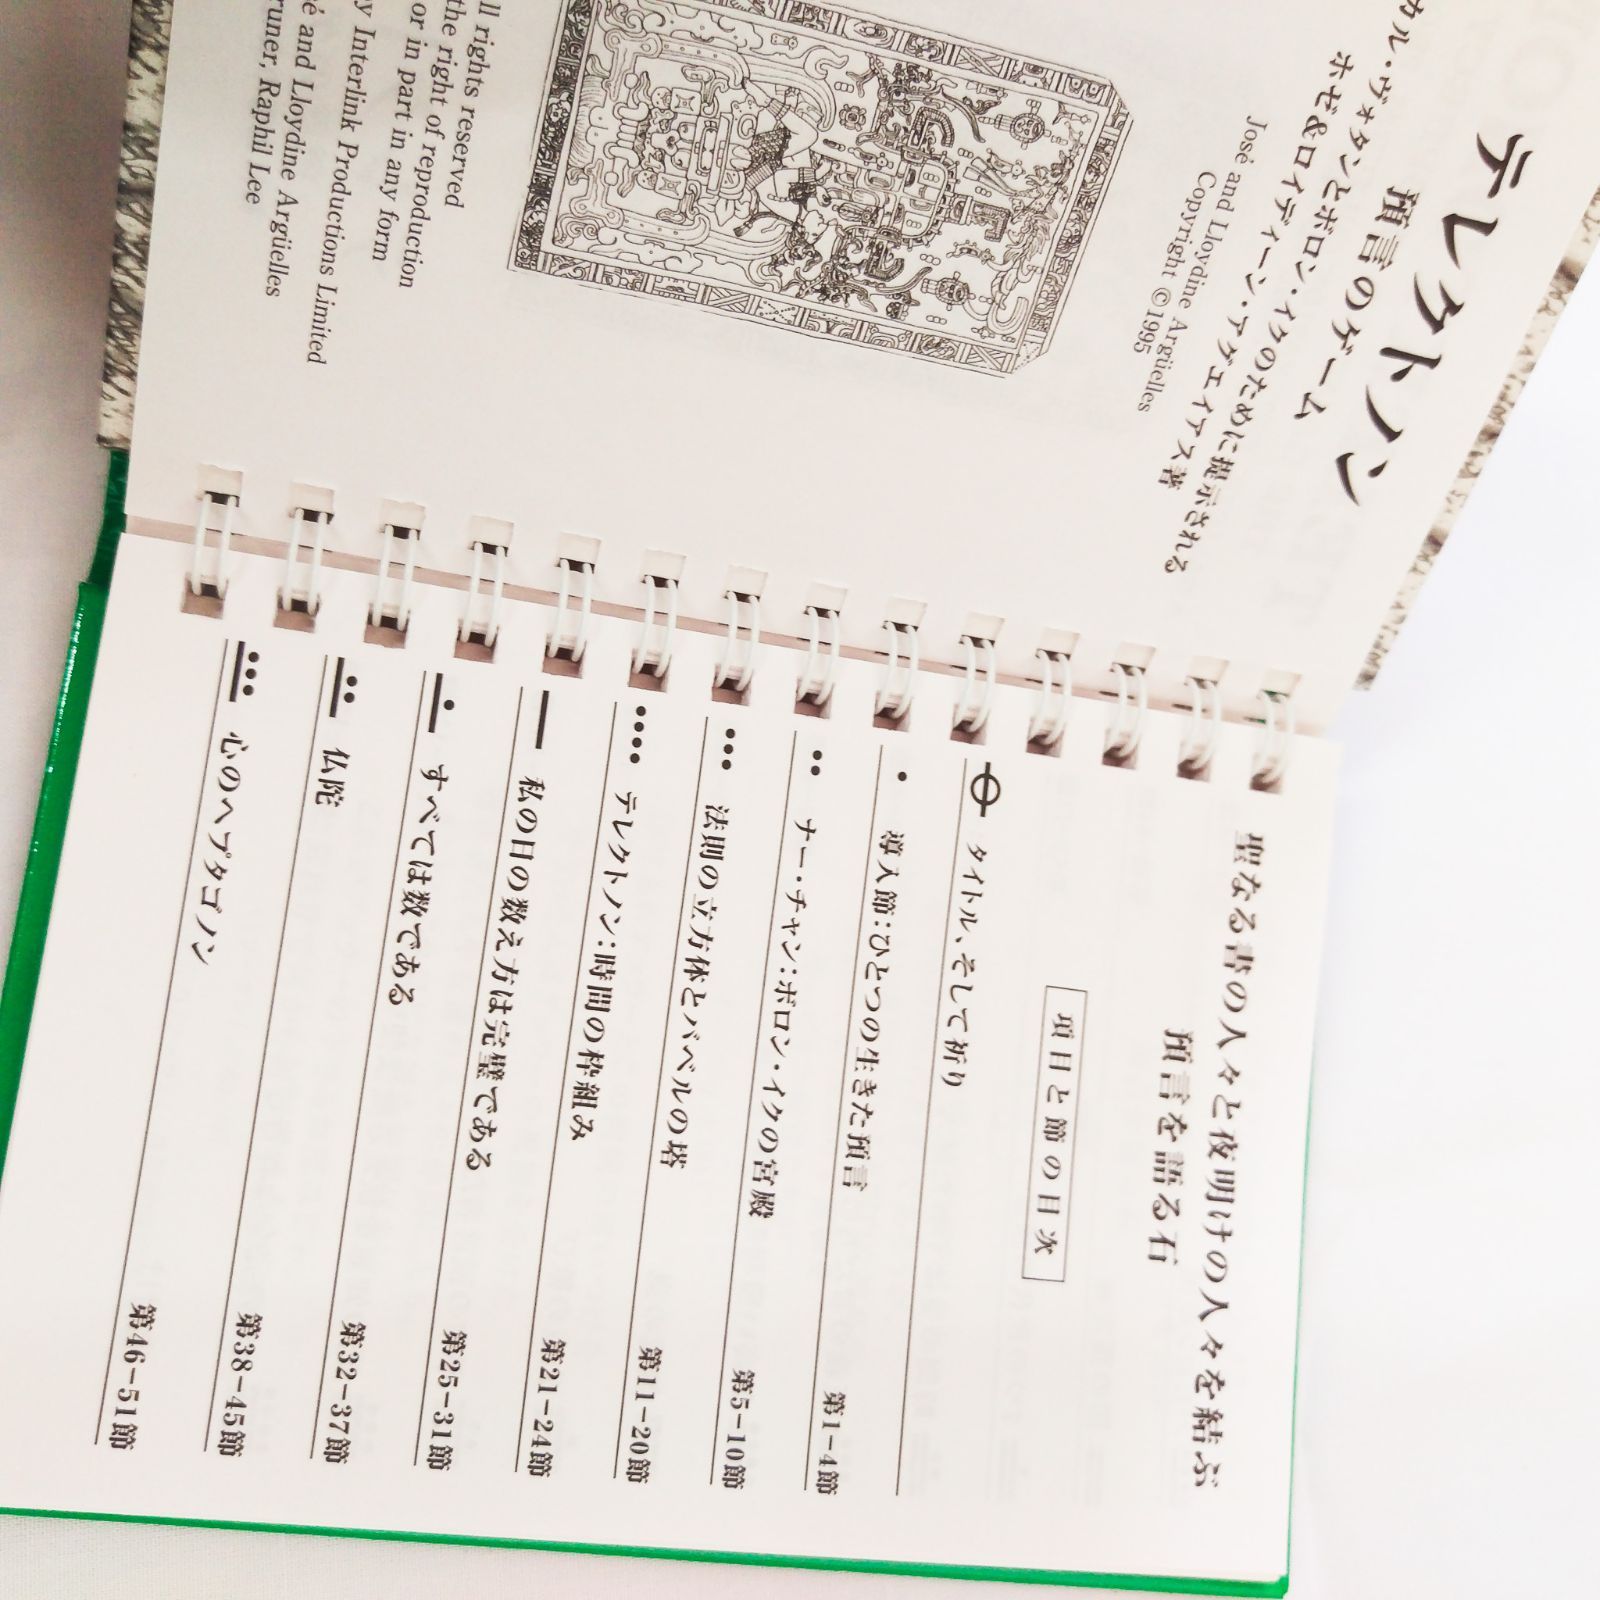 テレクトノン
預言のゲーム
カル・ヴォタンとボロン・イクのために提示される
ホゼ&ロイディーン・アグエイアス著
José and Lloydine Argüelles
Copyright ©1995
ll rights reserved
the right of reproduction
or in part in any form
y Interlink Productions Limited
é and Lloydine Argüelles
runer, Raphil Lee
聖なる書の人々と夜明けの人々を結ぶ
預言を語る石
項目と節の目次
タイトル、そして祈り
導入節:ひとつの生きた預言 第1−4節
ナー・チャン:ボロン・イクの宮殿 第5−10節
法則の立方体とバベルの塔 第11−20節
テレクトノン:時間の枠組み 第21−24節
私の日の数え方は完璧である 第25−31節
すべては数である 第32−37節
仏陀 第38−45節
心のヘプタゴノン 第46−51節